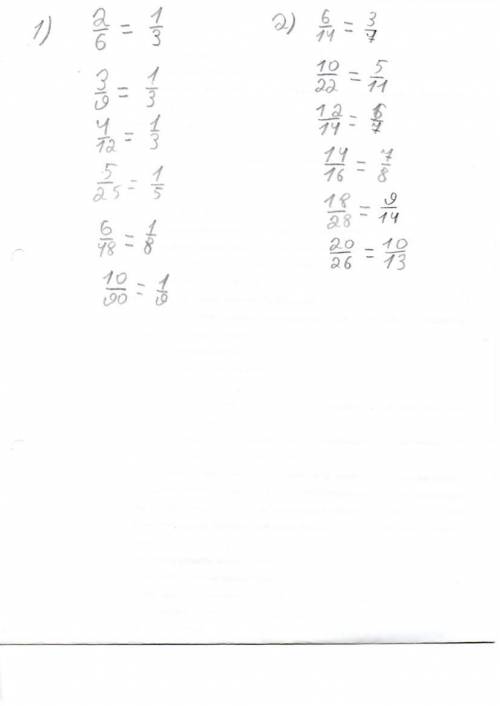 1) 2/6 = 1/3
3/9 = 1/3
4/12 = 1/3
5/25 = 1/5
6/48 = 1/8
10/90 = 1/9
2) 6/14 = 3/7
10/22 = 5/11
12/14 = 6/7
14/16 = 7/8
18/28 = 9/14
20/26 = 10/13